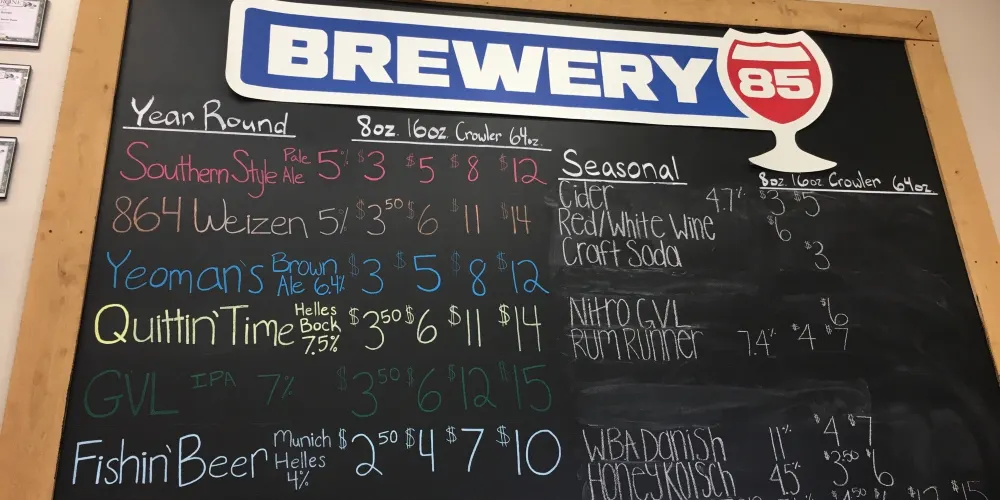 BREWERY 85
Year Round 8oz. 16oz. Crowler 64oz.
Southern Style Pale Ale 5% $3 $5 $8 $12
864 Weizen 5% $3.50 $6 $11 $14
Yeoman's Brown Ale 6.4% $3 $5 $8 $12
Quittin' Time Helles Bock 7.5% $3.50 $6 $11 $14
GVL IPA 7% $3.50 $6 $12 $15
Fishin' Beer Munich Helles 4% $2.50 $4 $7 $10
Seasonal 8oz 16oz Crowler 64oz.
Cider 4.7% $3 $5
Red/White Wine $6
Craft Soda $3
Nitro GVL $6
Rum Runner 7.4% $4 $7
WBA Danish 11% $4 $7
Honey Kolsch 4.5% $3.50 $6